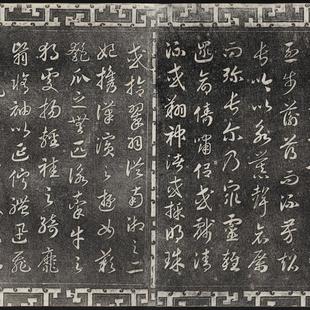 烈步蘅薄而流芳超
長吟以永慕聲哀厲
而彌長爾乃眾靈雜
遝命儔嘯侶或戲清
流或翔神渚或採明珠
或拾翠羽從南湘之二
妃攜漢濱之遊女歎
匏瓜之無匹詠牽牛之
獨處揚輕袿之綺靡
翳脩袖以延佇體迅飛